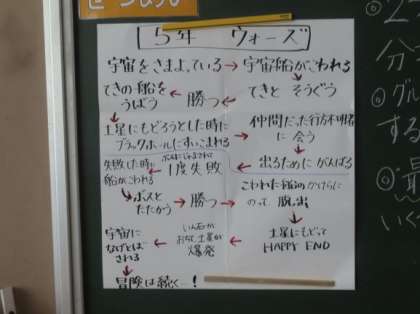 5年 ウォーズ
宇宙をさまよっている→宇宙船がこわれる
てきと そうぐう
勝つ
てきの船を
うばう
土星にもどろうとした時に
ブラックホールにすいこまれる
仲間だった行方不明者
に会う
出るためにがんばる
ボスにじゃまされて
1度失敗
失敗した時に
船がこわれる
ボスと
たたかう→勝つ→
こわれた船のかけらに
のって脱出
土星にもどって
HAPPY END
いん石が
おちて土星が
爆発
宇宙に
なげとばさ
される
冒険は続く…!
2
分
グル
する
いく